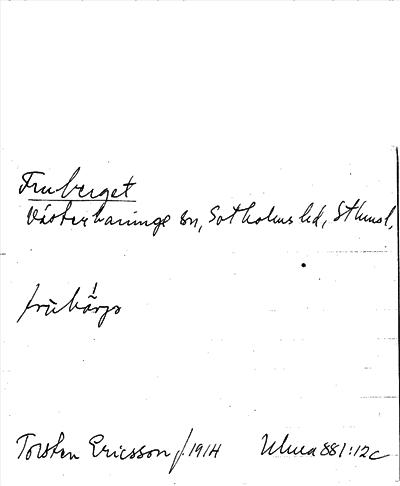 Fruberget
Västerhaninge sn, Sotholms hd, Sthmsl,
Torsten Ericsson / 1914 Ulma 881:12c